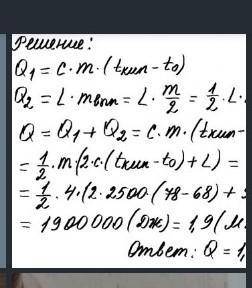 Решение:
Q₁ = c·m·(tкип - t₀)
Q₂ = L·mвып = L·m/2 = 1/2·L·
Q = Q₁ + Q₂ = c·m·(tкип-
= 1/2·m(2·c·(tкип - t₀) + L) =
= 1/2·4·(2·2500·(78-68) +
= 1900000 (Дж) = 1,9 (М
Ответ: Q = 1,